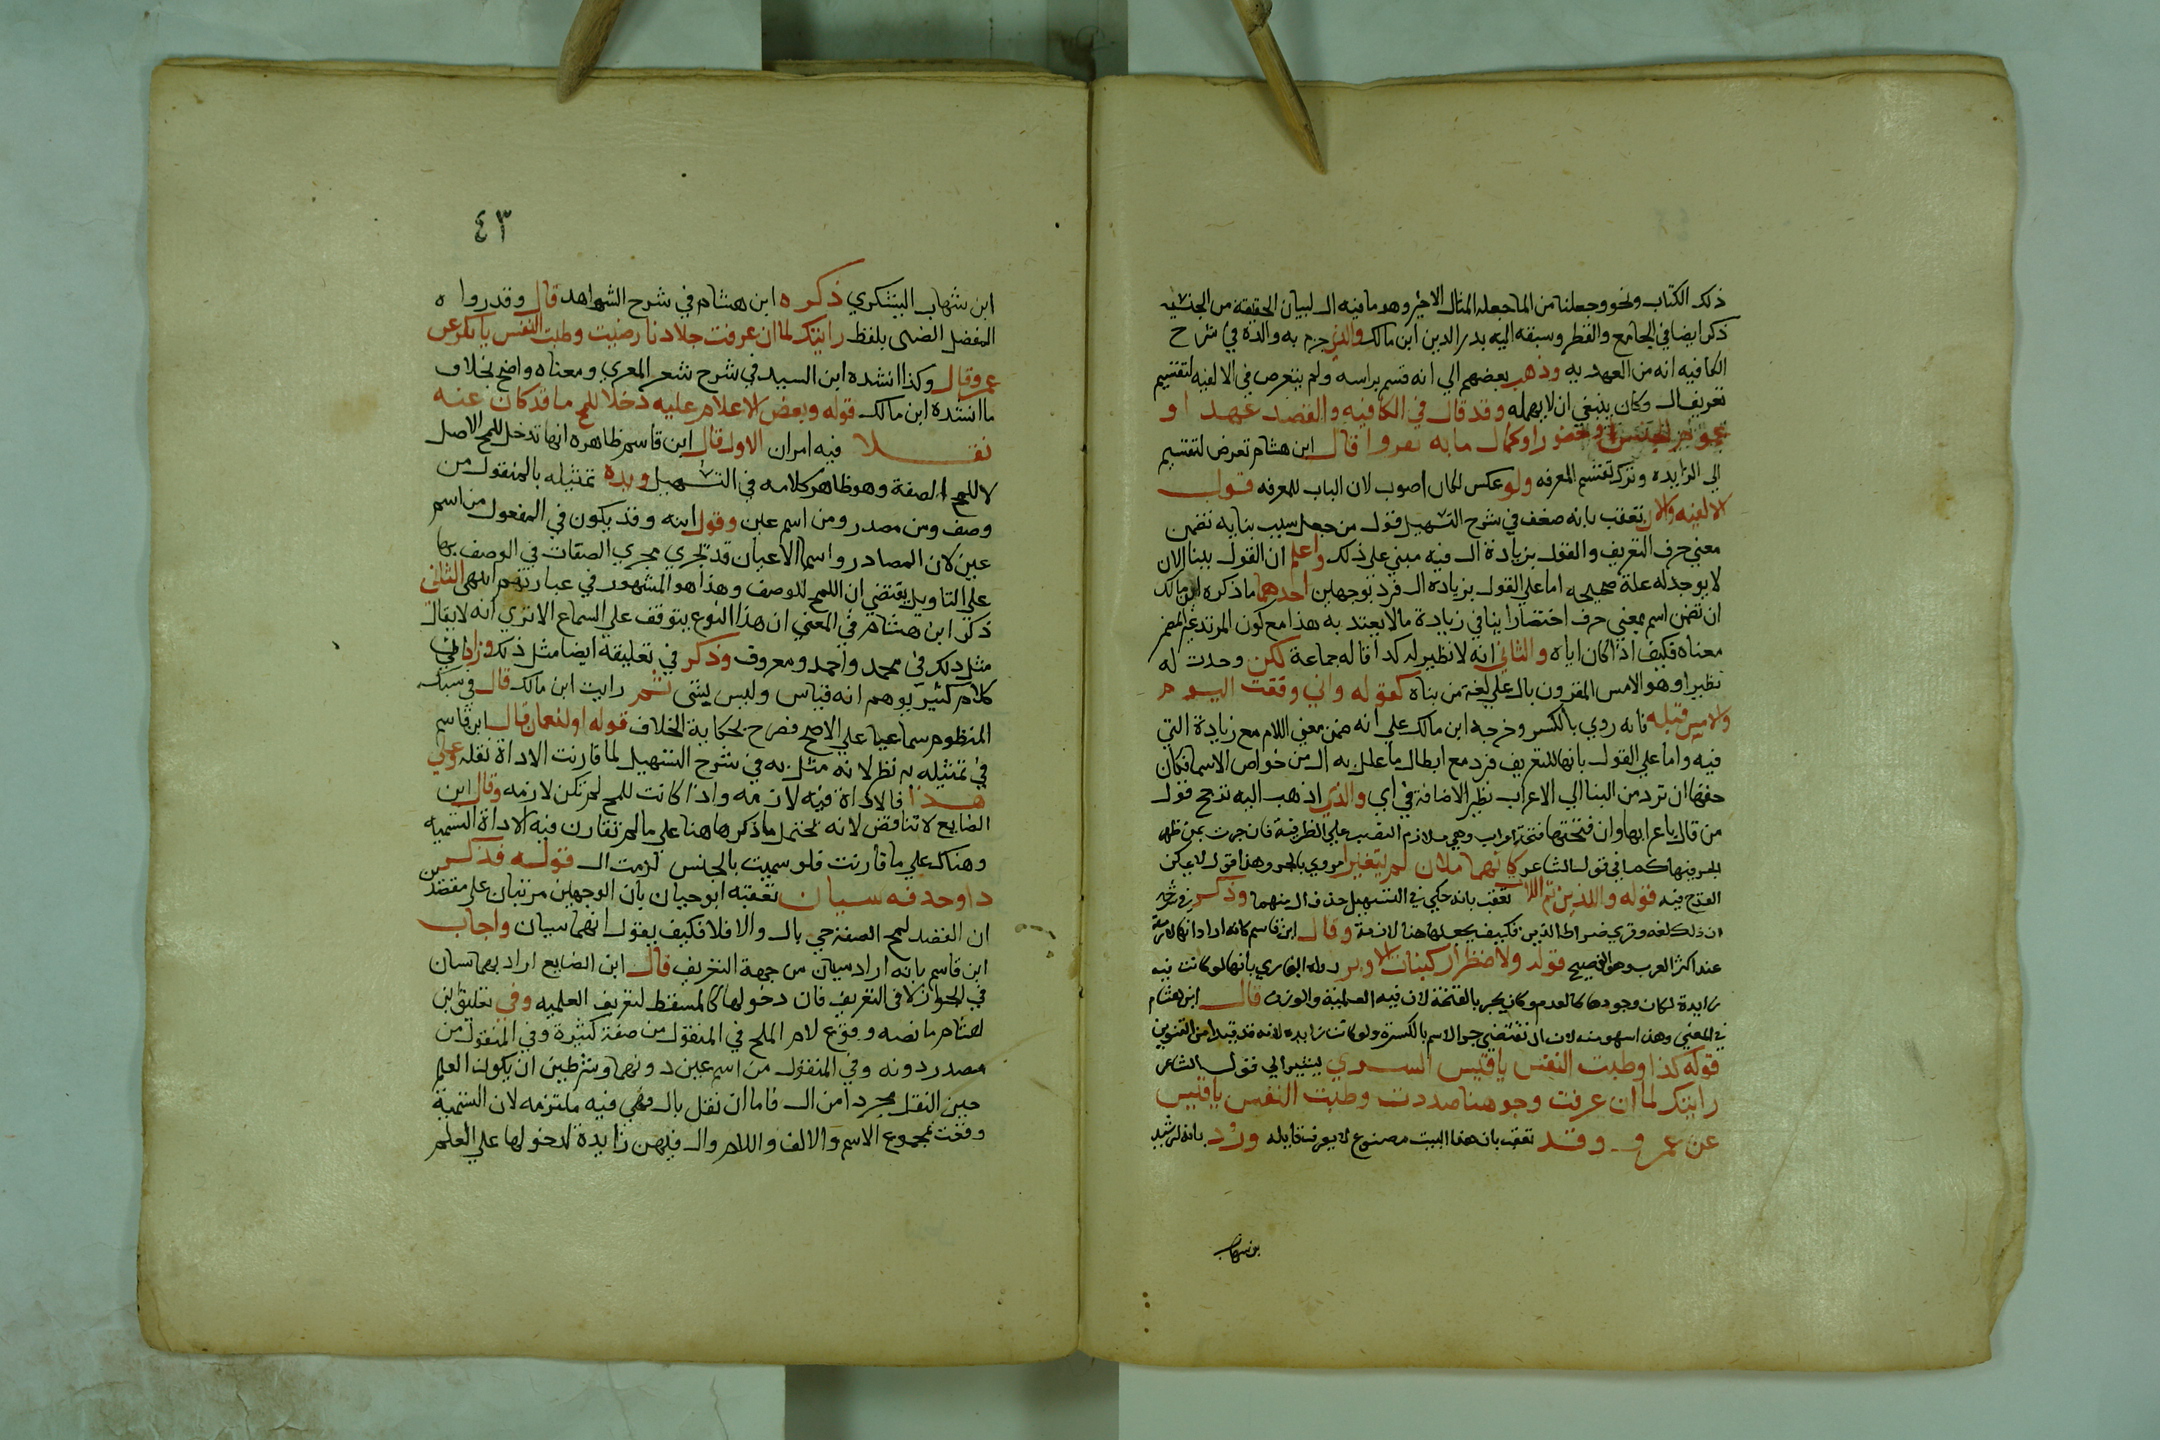 ذلك الكتاب ونحو وجعلنا من الماء جعله المثال الاخير وهو ما فيه ال لبيان الحقيقة من الجنسية
ذكر ايضا في الجامع والقطر وسبقه اليه بدر الدين ابن مالك والذي جزم به والده في شرح
الكافيه انه من العهديه وذهب بعضهم الي انه قسم براسه ولم يتعرض في الالفيه لتقسيم
تعريف ال وكان ينبغي ان لا يهمله وقد قال في الكافيه والقصد عهد او
حضور او كمال ما به نعروا قال ابن هشام تعرض لتقسيم
الي الزايده وترك تقسيم المعرفه ولو عكس لكان اصوب لان الباب للمعرفه قول
الالفيه والان تعقب بانه ضعف في شرح التسهيل قول من جعل سبب بنايه تضمن
معني حرف التعريف والقول بزيادة ال فيه مبني علي ذلك واعلم ان القول ببنا الان
لا يوجد له علة صحيحه اما علي القول بزياده ال فرد بوجهين احدهما ما ذكره ابن مالك
ان تضمن اسم معني حرف اختصارا ينافي زيادة ما لا يعتد به هذا مع كون المزيد غير المضمر
معناه فكيف اذا كان اياه والثاني انه لا نظير له كذا قاله جماعة لكن وجدت له
نظيرا وهو الامس المقرون بال علي لغة من بناه كقوله واني وقفت اليوم
والامس قبله فانه روي بالكسر وخرجه ابن مالك علي انه ضمن معني اللام مع زيادة التي
فيه واما علي القول بانها للتعريف فرد مع ابطال ما علل به ال من خواص الاسما فكان
حقها ان ترد من البنا الي الاعراب نظير الاضافة في اي والذي اذهب اليه ترجح قول
من قال باعرابها وان فتحتها فتحة اعراب وهي ملازم النصب علي الظرفية فان جرت بمن ظهر
الجر فيها كما في قول الشاعر كانهما ملان لم يتغيرا مروي بالجر وهذا قول لا يمكن
القدح فيه قوله والذين ثم اللات تعقب بانه حكي في التسهيل حذف ال منهما وذكر في شرحه
ان ذلك لغه وقري صراط الذين فكيف يجعلها هنا لازمة وقال ابن قاسم كانه اراد انها لازمة
عند اكثر العرب وهو الفصيح قوله ولاضطرار كبنات الاوبر رده الفاري بانها لو كانت فيه
زايدة لكان وجودها كالعدم وكان يجر بالفتحة لان فيه العلمية والوزن قال ابن هشام
في المغني وهذا سهو منه لان ال تقتضي جر الاسم بالكسرة ولو كانت زايدة لانه قد قيد امن التنوين
قوله كذا وطبت النفس يا قيس السري يشير الي قول الشاعر
رايتك لما ان عرفت وجوهنا صددت وطبت النفس يا قيس
عن عمرو وقد تعقب بان هذا البيت مصنوع لا يعرف قايله ورد بانه لرشيد
بن شهاب
٤٣
ابن شهاب اليشكري ذكره ابن هشام في شرح الشواهد قال وقد رواه
المفضل الضبي بلفظ رايتك لما ان عرفت جلادنا رضيت وطبت النفس يا بكر عن
عمرو قال وكذا انشده ابن السيد في شرح شعر المعري ومعناه واضح بخلاف
ما انشده ابن مالك قوله وبعض الاعلام عليه دخلا للمح ما قد كان عنه
نقلا فيه امران الاول قال ابن قاسم ظاهره انها تدخل للمح الاصل
لا للمح الصفة وهو ظاهر كلامه في التسهيل ويده تمثيله بالمنقول من
وصف ومن مصدر ومن اسم عين وقول ابنه وقد يكون في المفعول من اسم
عين لان المصادر واسما الاعيان قد تجري مجري الصفات في الوصف بها
علي التاويل يقتضي ان اللمح للوصف وهذا هو المشهور في عبارتهم انتهي الثاني
ذكر ابن هشام في المغني ان هذا النوع يتوقف علي السماع الا تري انه لا يقال
مثل ذلك في محمد واحمد ومعروف وذكر في تعليقه ايضا مثل ذلك وزاد ان
كلام كثير يوهم انه قياس وليس بشي ثم رايت ابن مالك قال في سبك
المنظوم سماعيا علي الاصح فصرح بحكاية الخلاف قوله او لنعمان قال ابن قاسم
في تمثيله به نظر لانه مثل به في شرح التسهيل لما قارنت الاداة نقله علي
هذا فالاداة فيه لازمه واذا كانت للمح لم تكن لازمه وقال ابن
الضايع لا تناقض لانه يحتمل ما ذكر هاهنا علي ما لم تقارن فيه الاداة التسميه
وهناك علي ما قارنت فلو سميت بالجنس لزمت ال قوله فذكر
ذا وحذفه سيان تعقبه ابو حيان بان الوجهين مرتبان علي مقصدين
ان القصد لمح الصفة جي بال والا فلا فكيف يقول انهما سيان واجاب
ابن قاسم بانه اراد سيان من جهة التعريف قال ابن الضايع اراد بهما سيان
في الجواز لا في التعريف فان دخولها كالمسقط لتعريف العلميه وفي تعليق ابن
هشام ما نصه وقوع لام الملح في المنقول من صفة كثيرة وفي المنقول من
مصدر دونه وفي المنقول من اسم عين دونهما وشرطين ان يكون العلم
حين النقل مجردا من ال فاما ان نقل بال وهي فيه ملتزمه لان التسمية
وقعت بمجموع الاسم والالف واللام وال فيهن زايدة لدخولها علي العلم